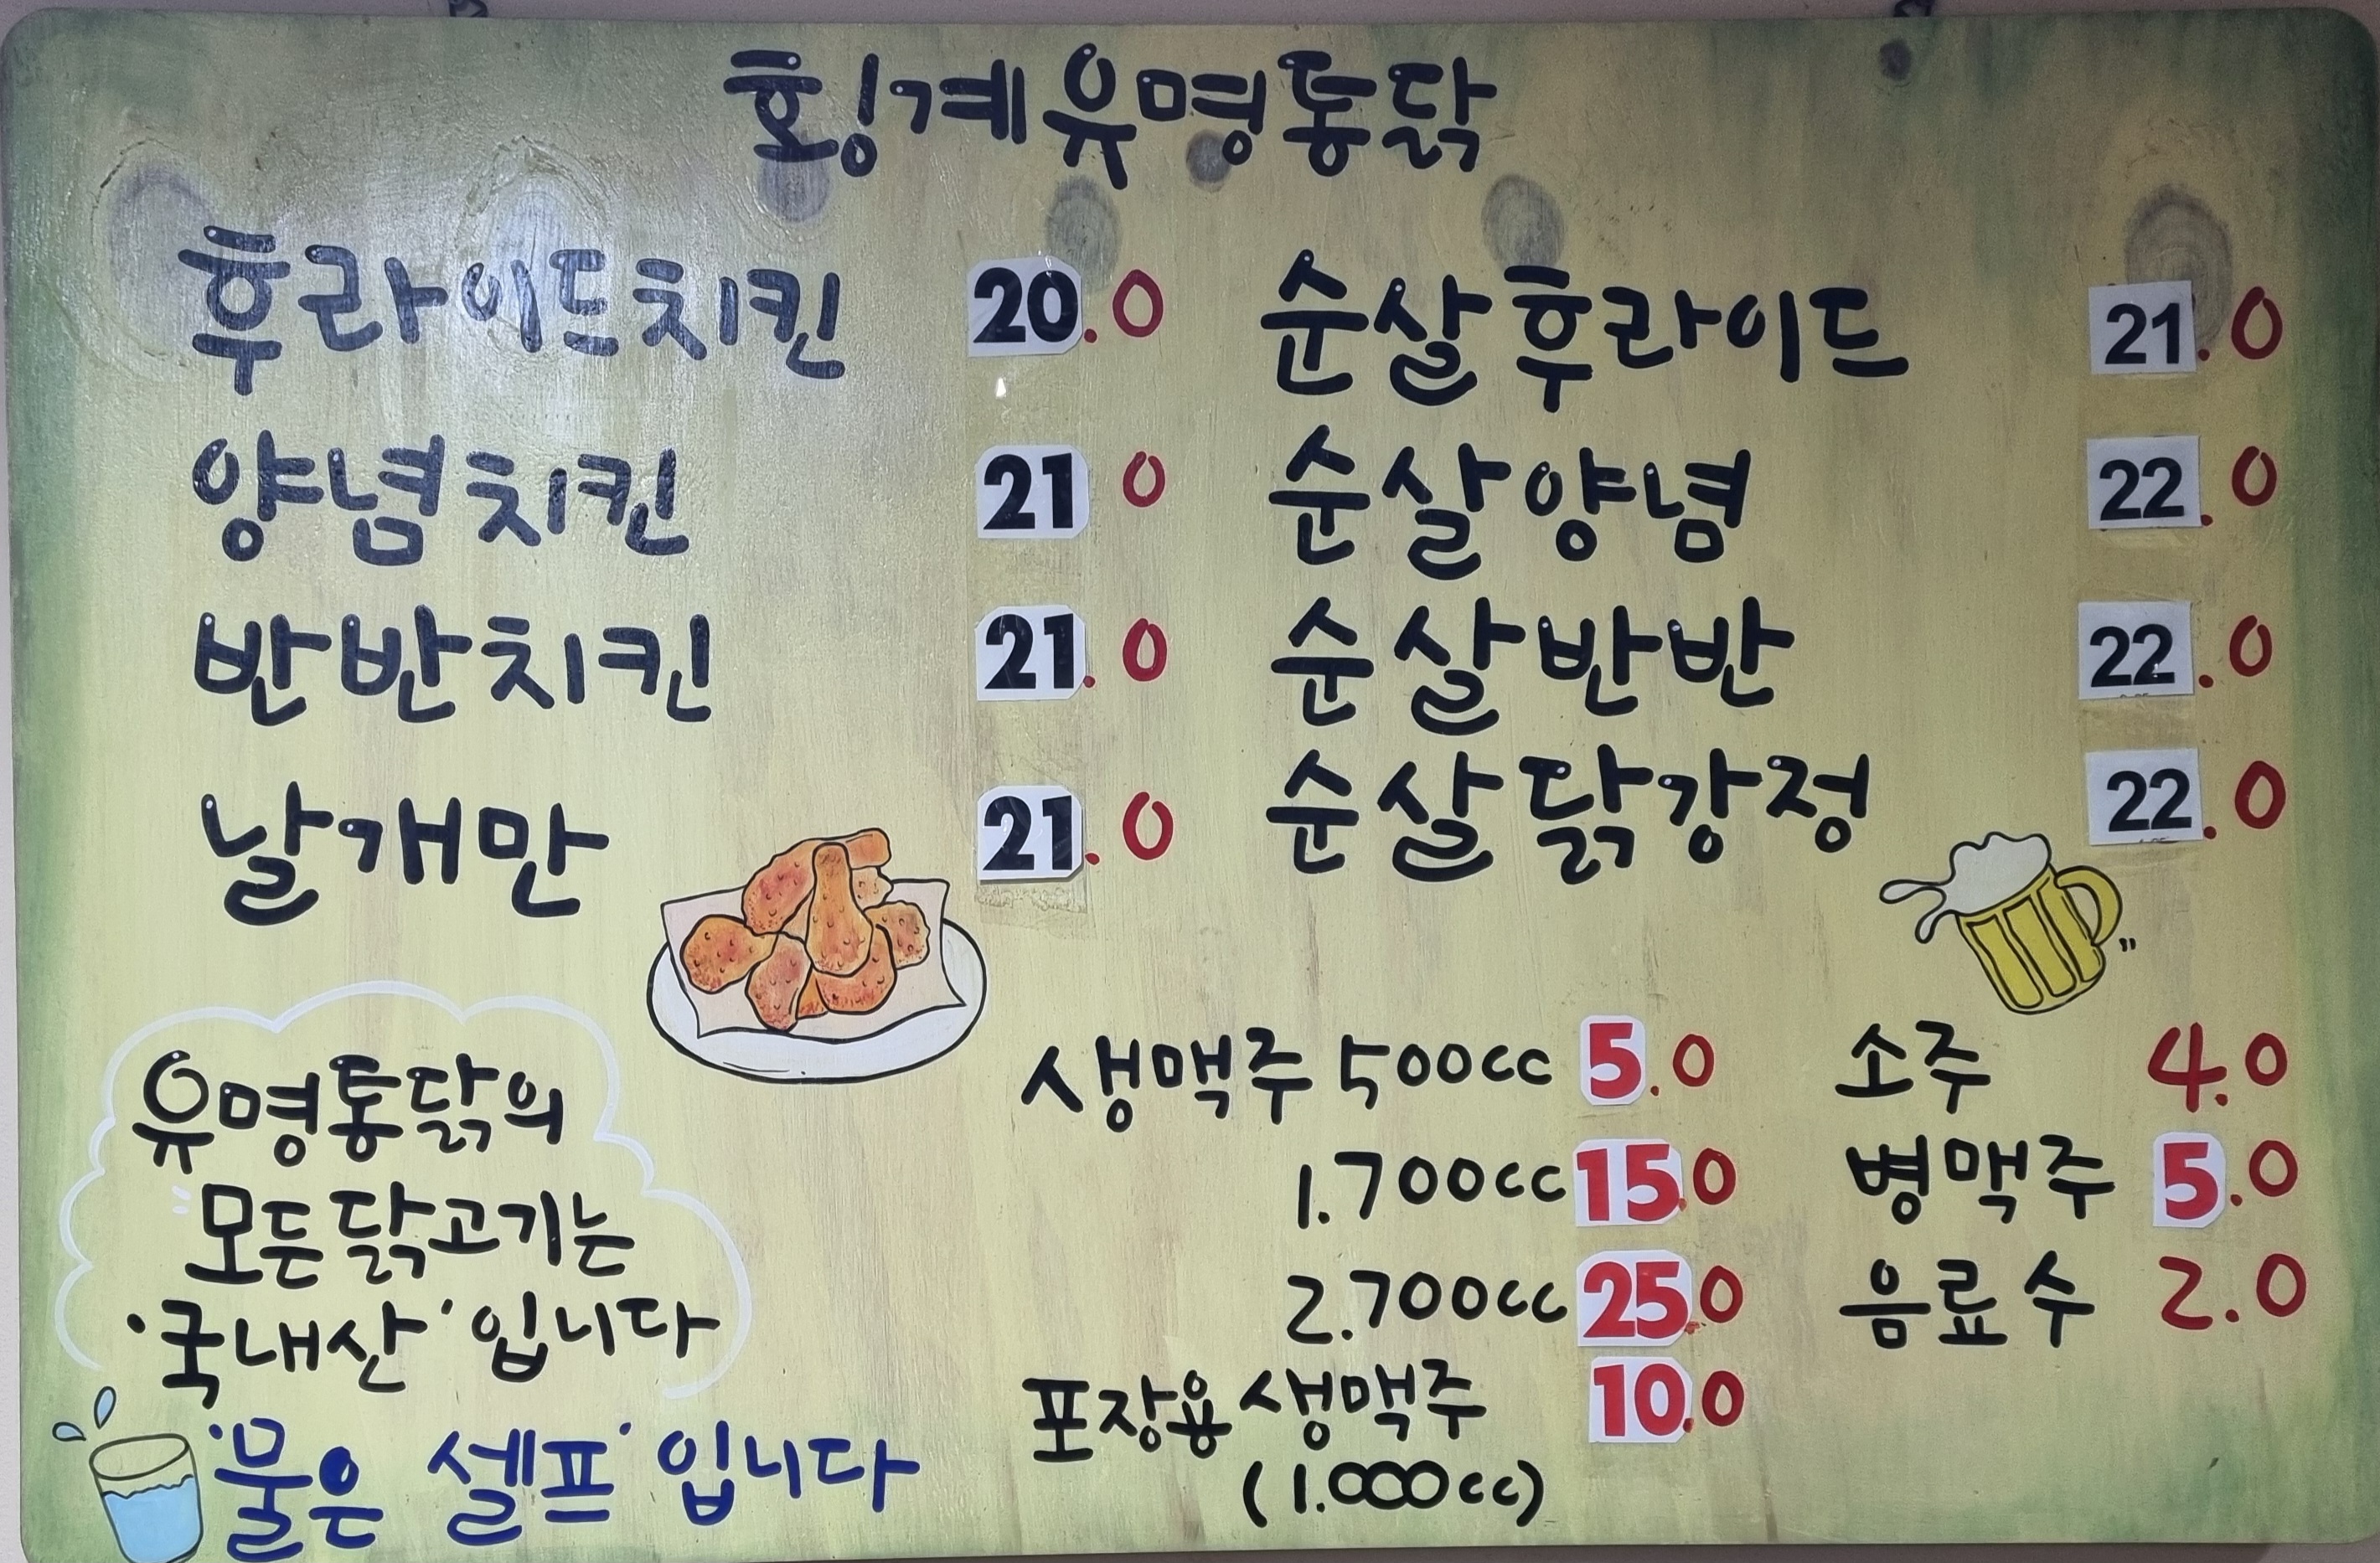 횡계유명통닭
후라이드치킨 20.0
양념치킨 21 0
반반치킨 21.0
날개만 21.0
순살후라이드 21.0
순살양념 22.0
순살반반 22.0
순살닭강정 22.0
생맥주 500cc 5.0
1.700cc 15.0
2.700cc 25.0
포장용 생맥주 10.0
(1.000cc)
소주 4.0
병맥주 5.0
음료수 2.0
유명통닭의
모든닭고기는
'국내산'입니다
'물은 셀프'입니다